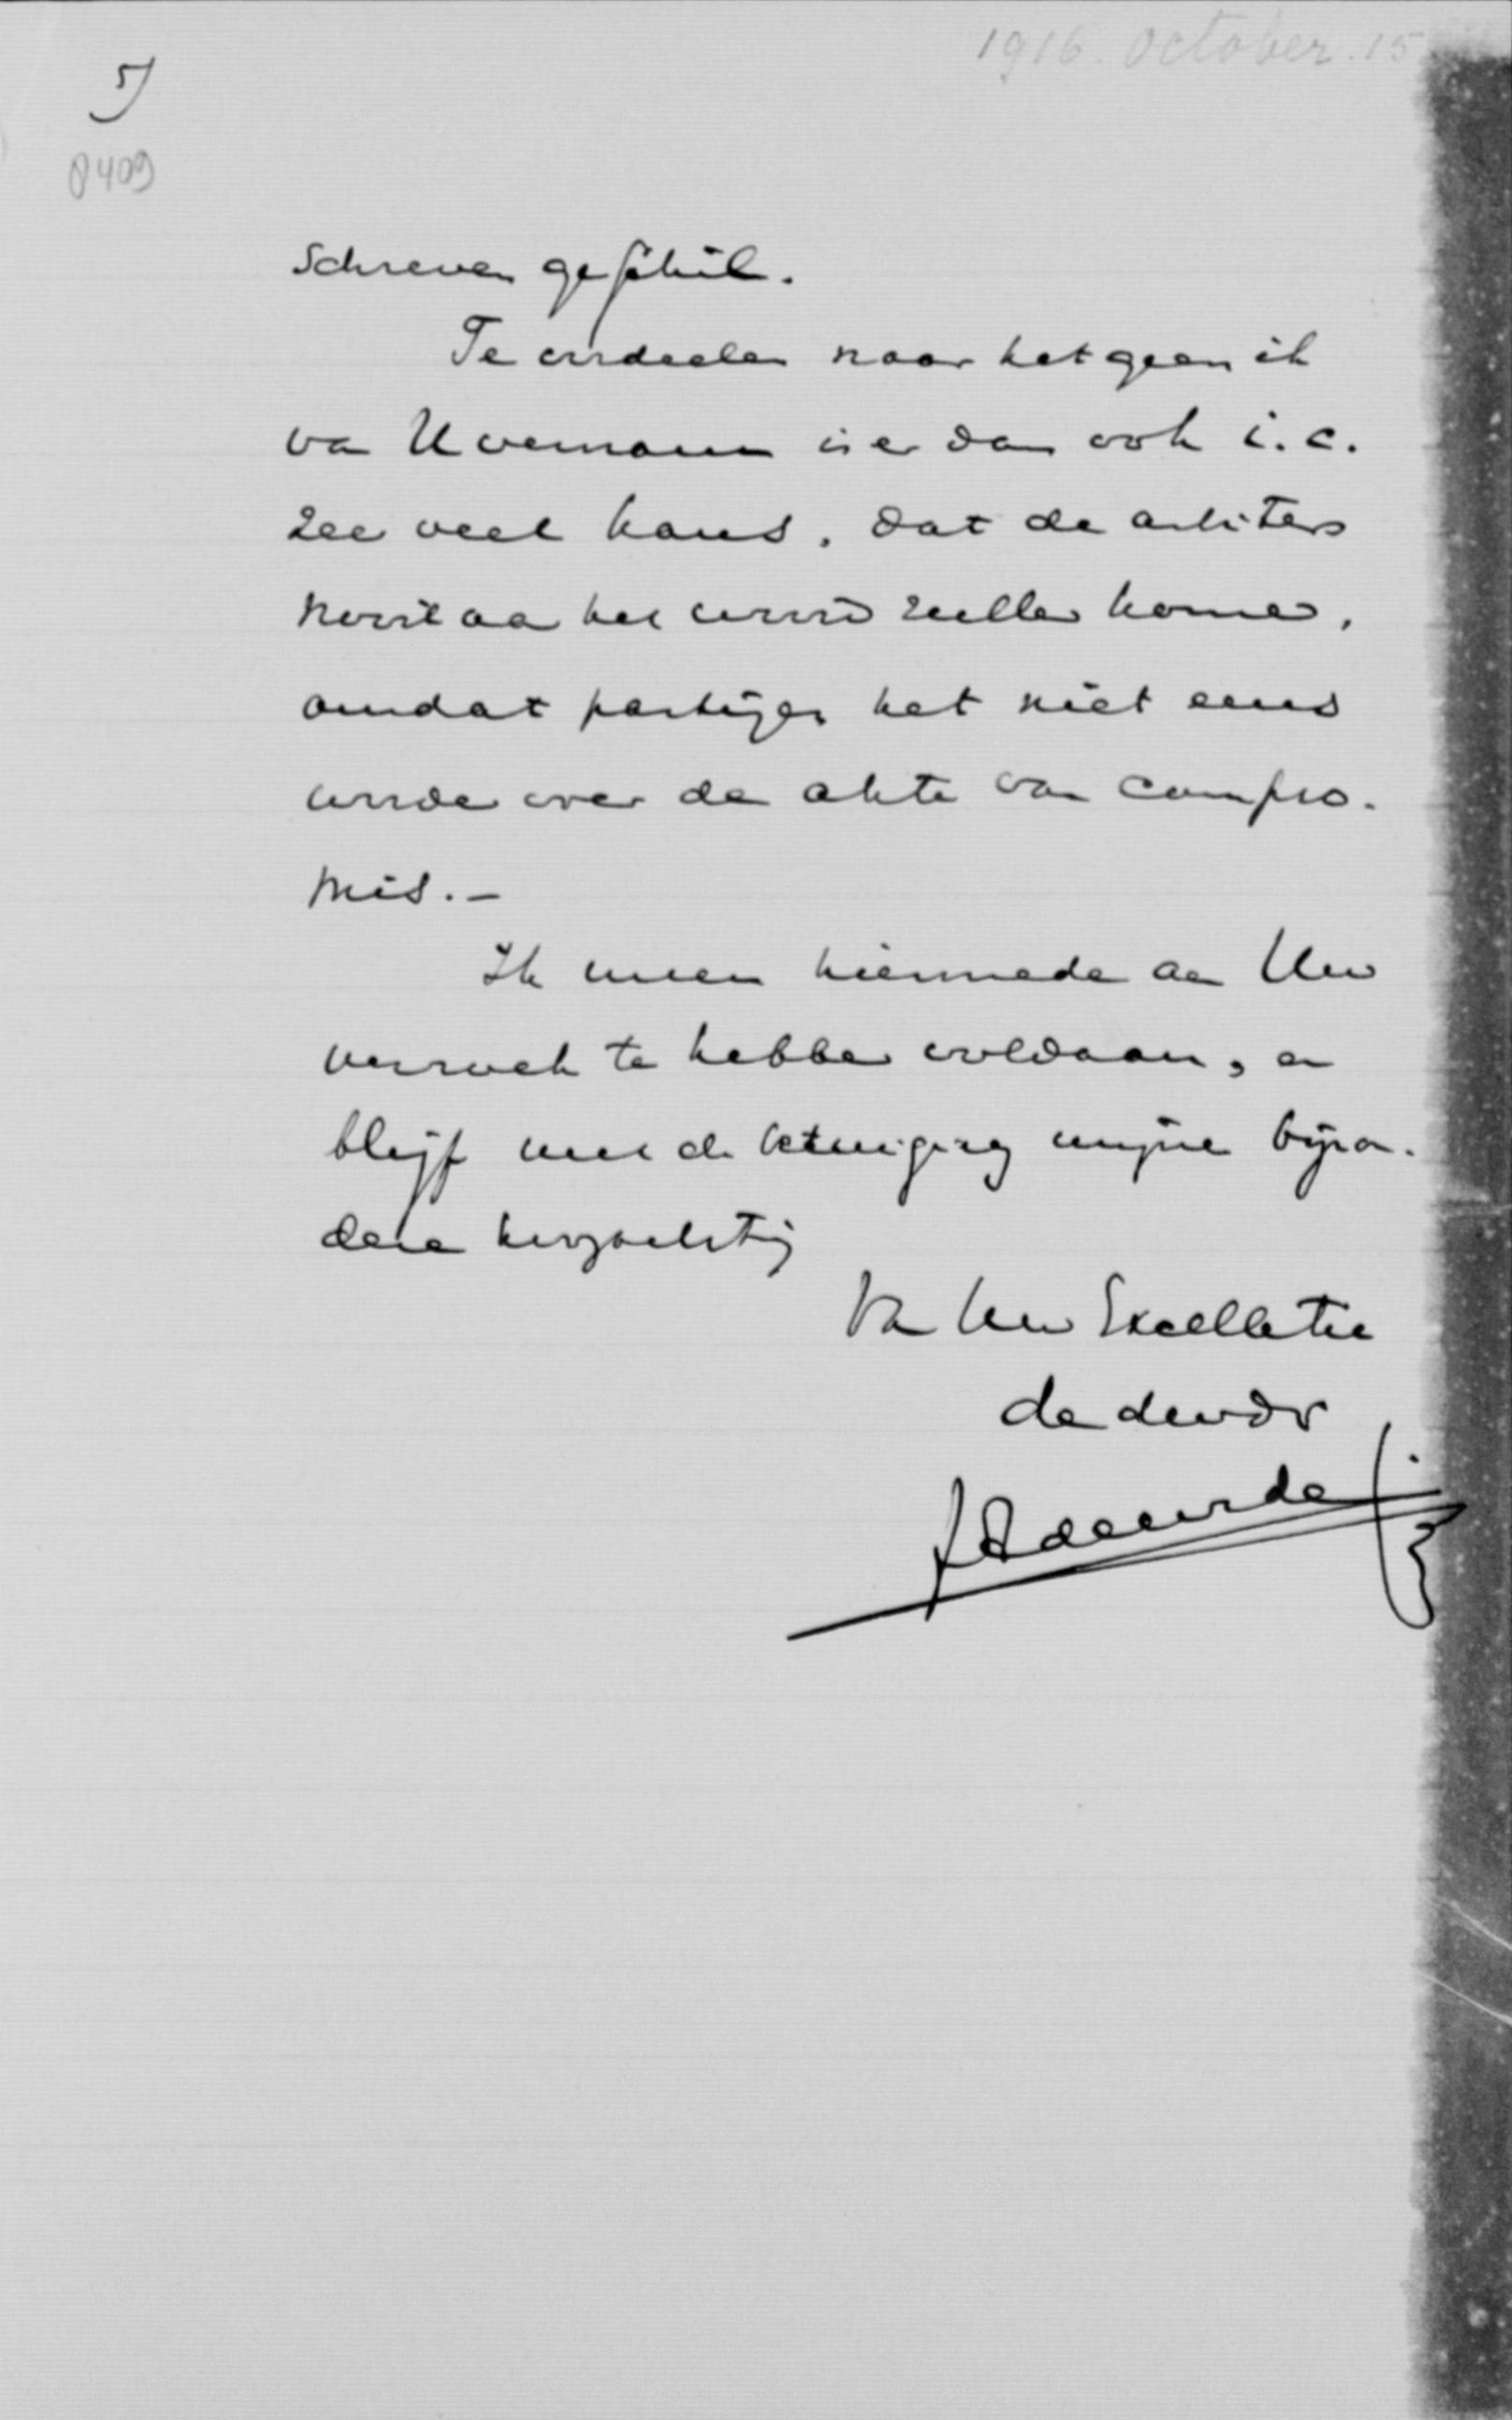 1916. October. 15
5)
8409
schreven geschil.
Te oordeelen naar hetgeen ik
van U vernam is er dan ook i.c.
zeer veel kans, dat de arbiters
nooit aan het woord zullen komen,
omdat partijen het niet eens
worden over de akte van compro-
mis.-
Ik meen hiermede aan Uw
verzoek te hebben voldaan, en
blijf met de betuiging mijner bijzon-
dere hoogachting
Van Uw Excellentie
de dw dr